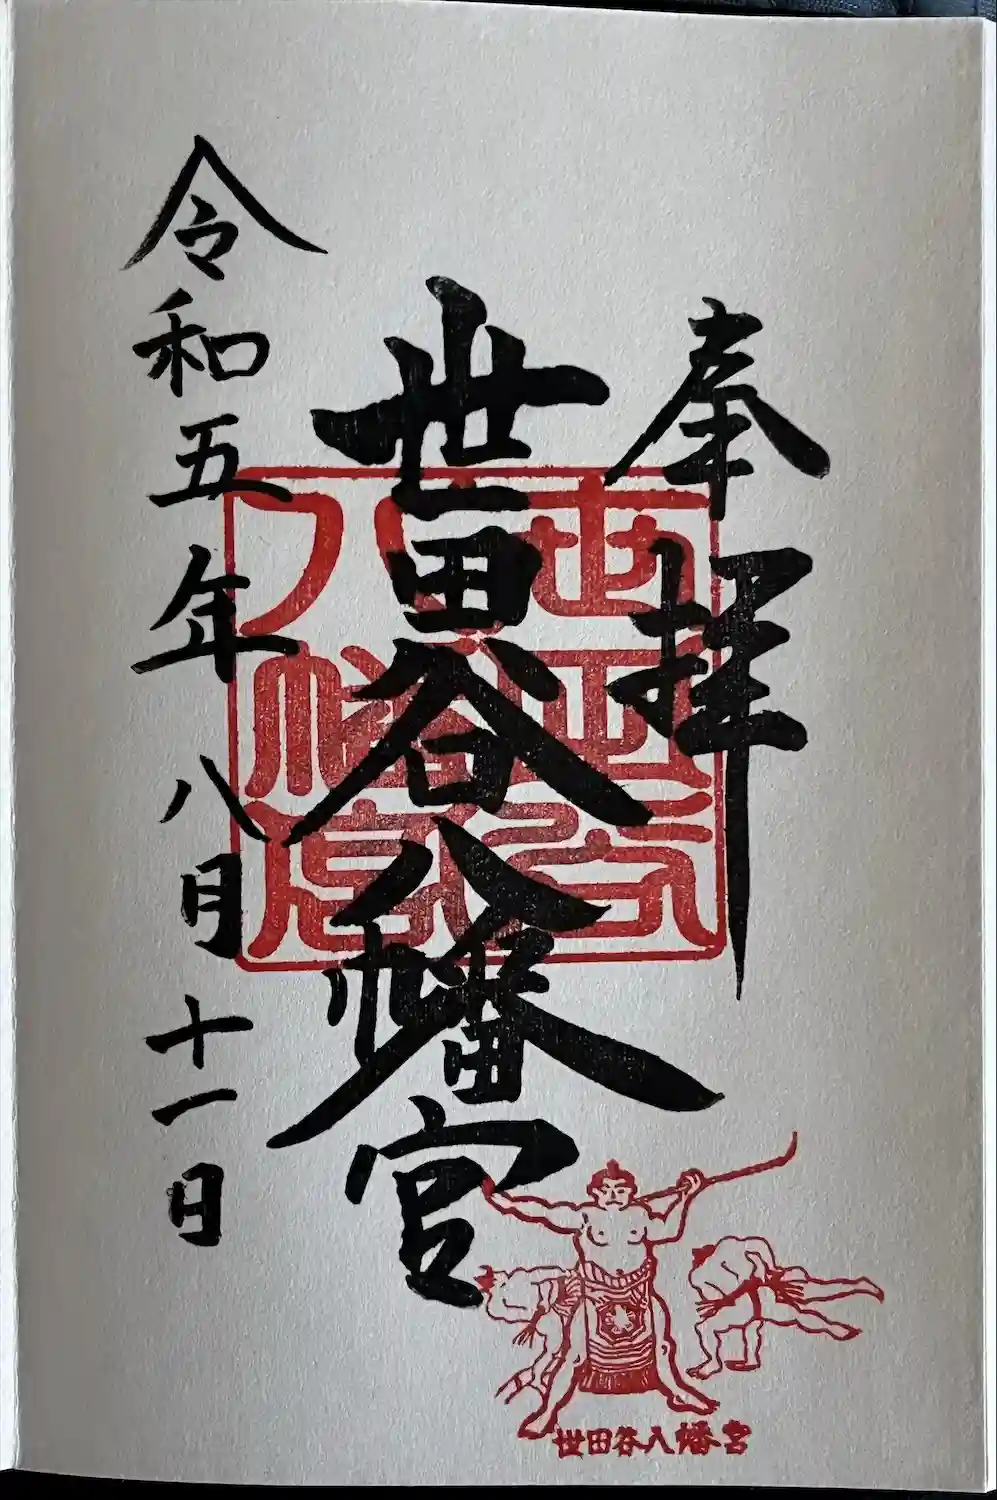 奉拝
世田谷八幡宮
令和五年八月十一日
世田谷八幡宮
世田谷八幡宮